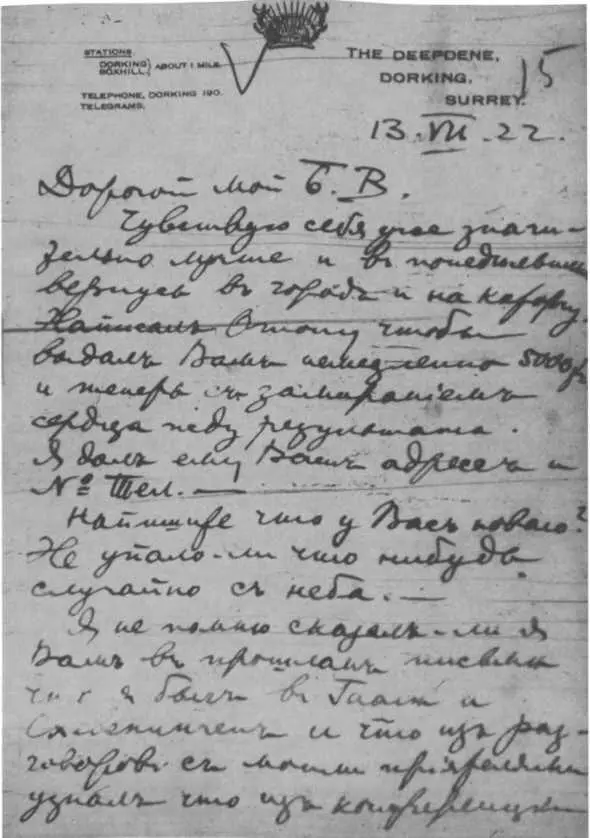 STATIONS.
DORKING } ABOUT 1 MILE.
BOXHILL.
TELEPHONE, DORKING 190.
TELEGRAMS.
THE DEEPDENE,
DORKING,
SURREY.
15
13.VII.22.
Дорогой мой Б.В.
Чувствую себя уже значи-
тельно лучше и въ понедѣльникъ
вернусь въ городъ и на каторгу.
Написалъ чтобы
выдалъ Вамъ немедленно 5000 fr
и теперь съ замираніемъ
сердца жду результата.
Я далъ ему Вашъ адресъ и
№ Тел. —
Напишите что у Васъ новаго?
Не упало-ли что нибудь
случайно съ неба. —
Я не помню сказалъ-ли я
Вамъ въ прошломъ письмѣ
что я былъ въ и
и что изъ раз-
говоровъ съ моими пріятелями
узналъ что изъ конференціи